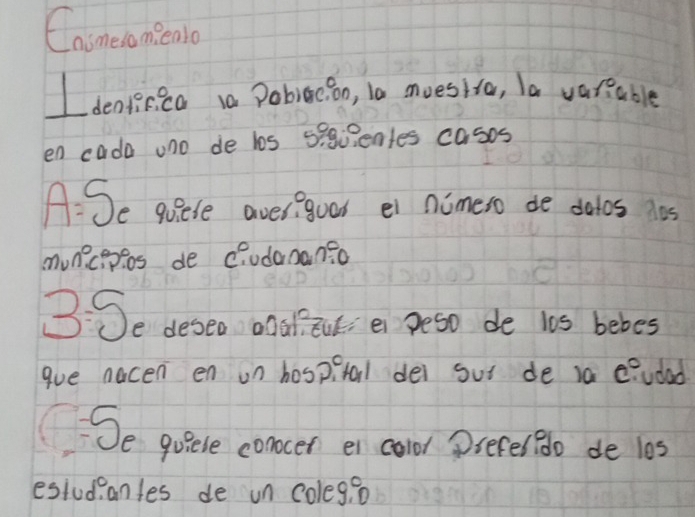 Enúmeramiento
Identifica la Población, la muestra, la variable
en cada uno de los siguientes casos
A=Se quiere averiguar el número de datos los
municipios de ciudananio
B=Se desea analizar el peso de los bebes
que nacen en un hospital del sur de la ciudad
C=Se quiere conocer el color Preferido de los
estudiantes de un colegio